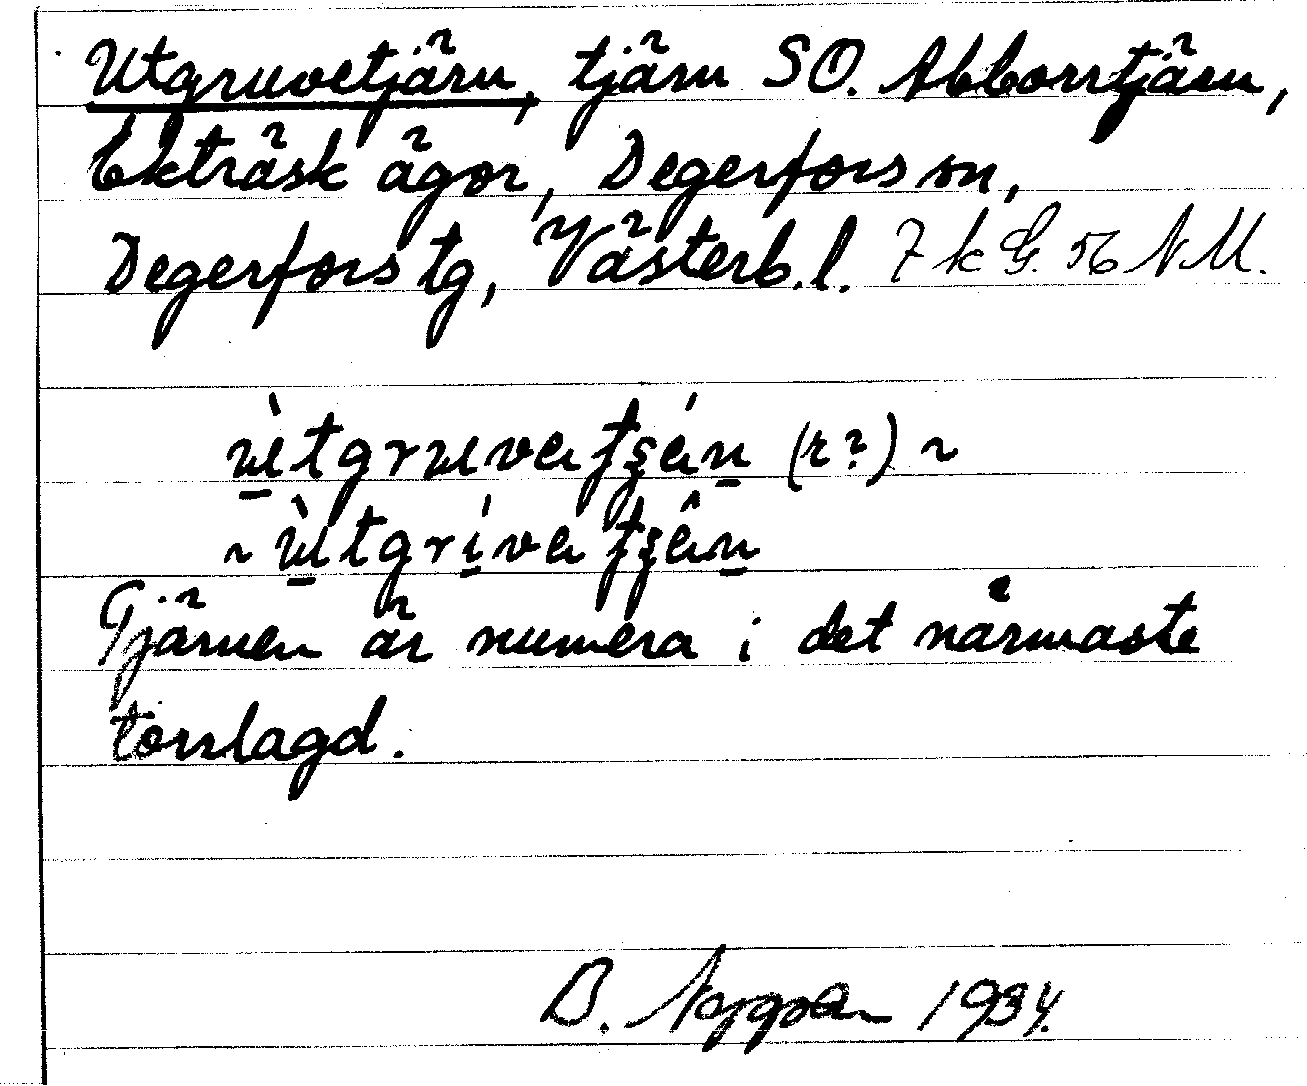 Utgruvetjärn, tjärn SO. Abborrtjärn,
Ekträsk ägor, Degerfors sn,
Degerfors tg, Västerb. l. 7 k G. 56 NM.
ùtgruvatʃȩ́n (r?) ~
~ ùtgrívatʃȩ̂n
Tjärnen är numera i det närmaste
torrlagd.
B. 1934.